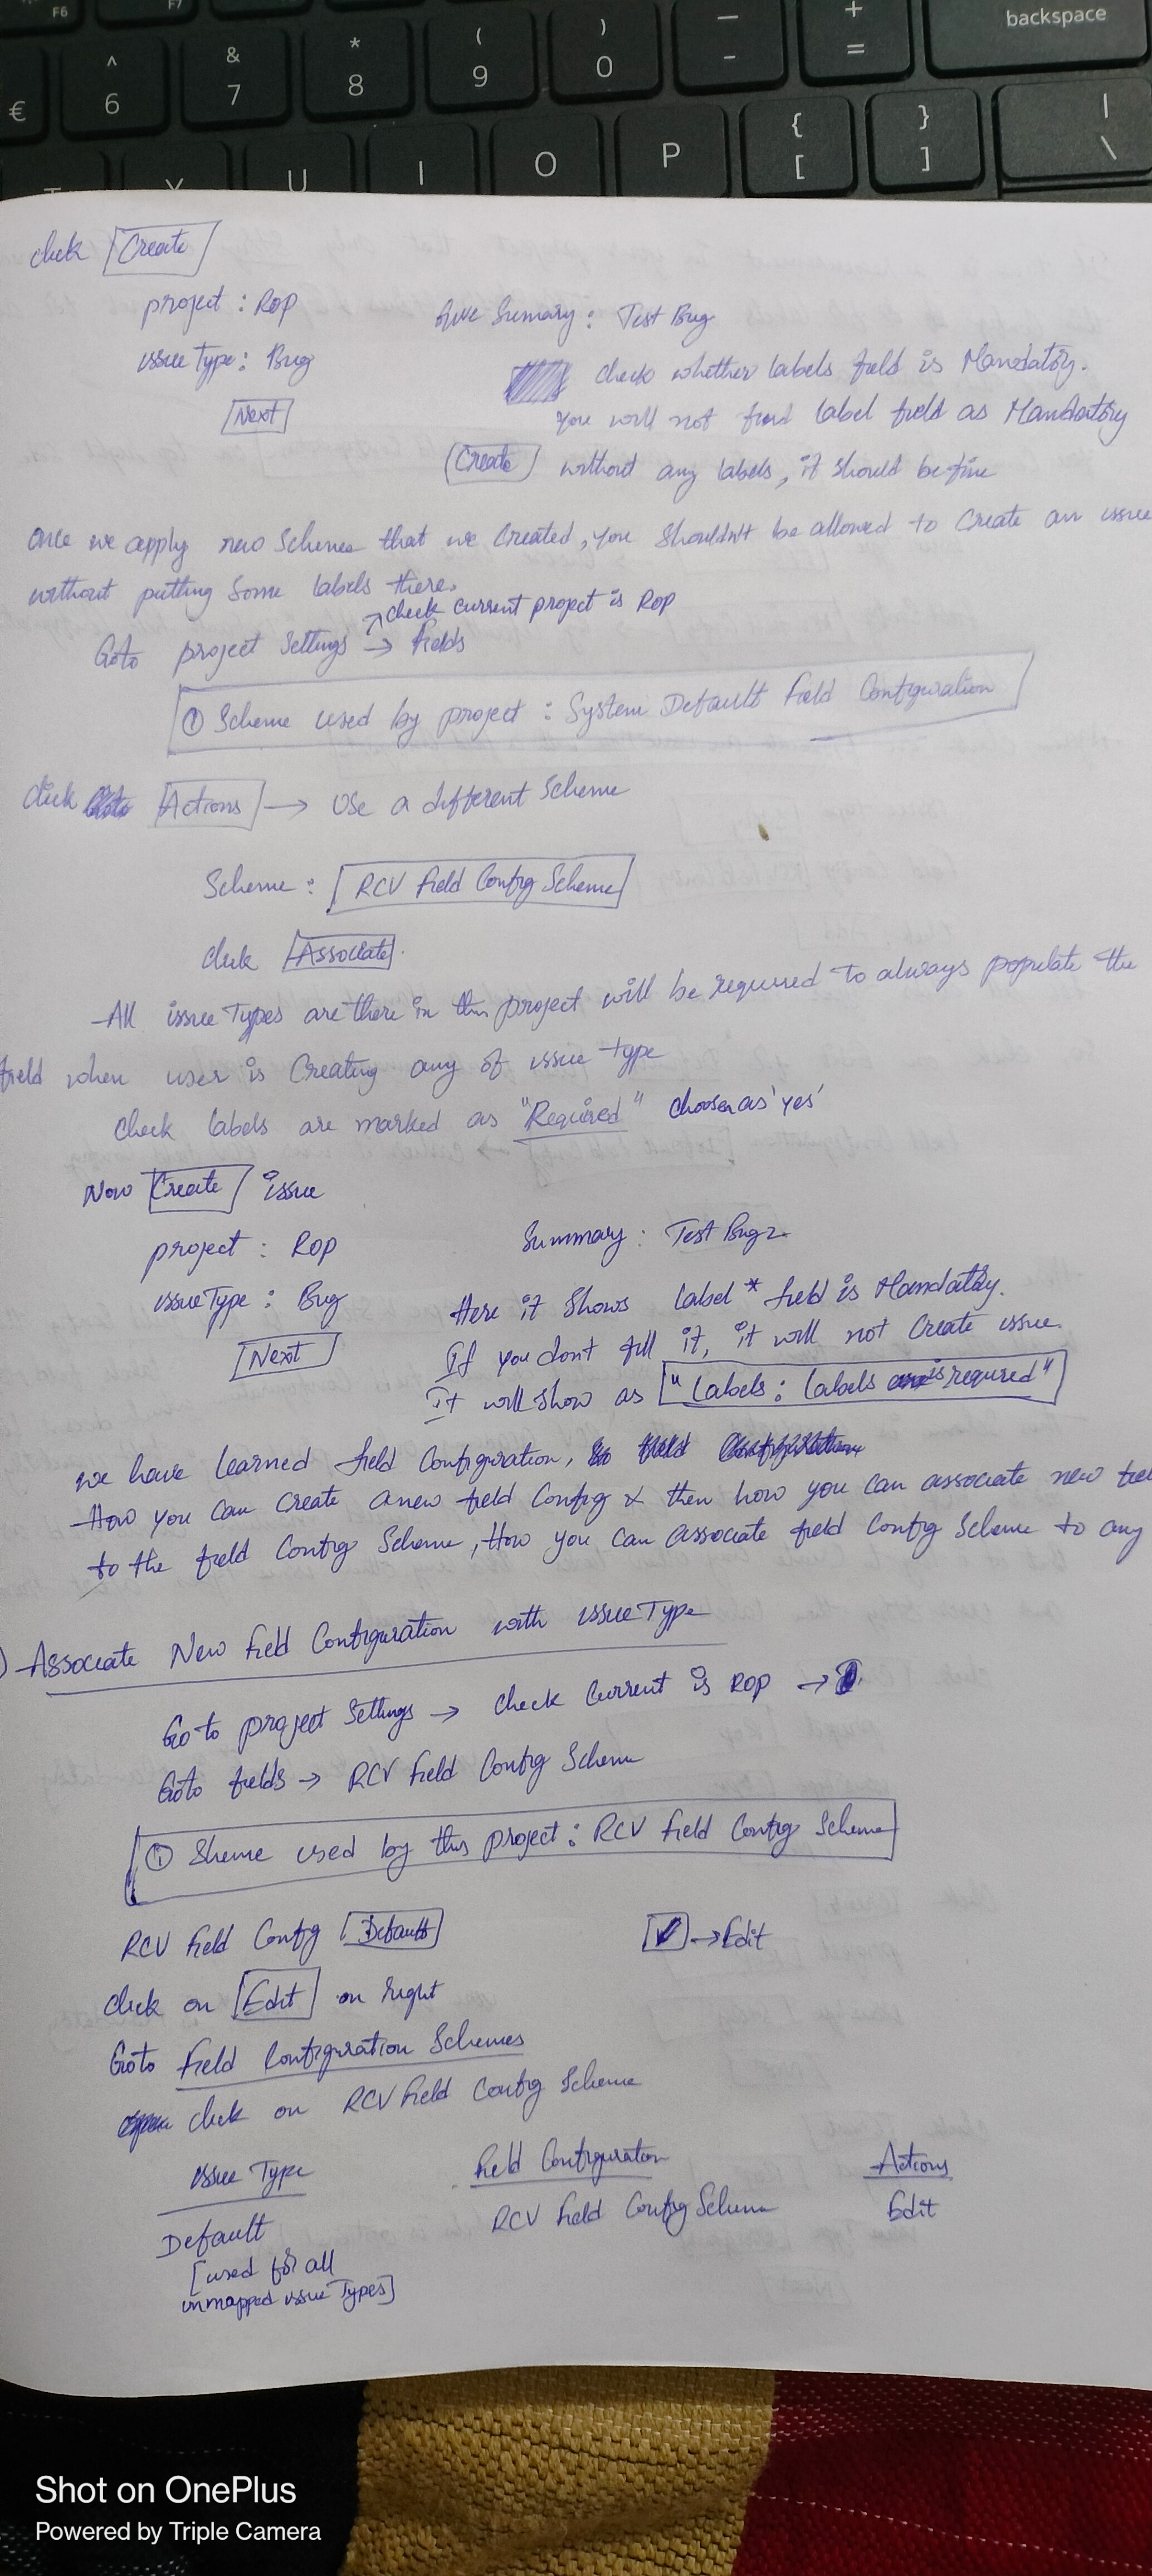 F6 F7
^ & * ( ) _ + backspace
€ 6 7 8 9 0 - =
{ } |
Y U I O P [ ] \
click Create
project : Rop
Give Summary : Test Bug
issue Type : Bug
check whether labels field is Mandatory.
Next
You will not find label field as Mandatory
Create without any labels, it should be fine
Once we apply new Scheme that we Created, you Shouldn't be allowed to Create an issue
without putting Some labels there.
↗ check current project is Rop
Goto project Settings → fields
① Scheme used by project : System Default Field Configuration
click Actions → Use a different Scheme
Scheme : RCV Field Config Scheme
click Associate.
All issue Types are there in this project will be required to always populate the
field when user is Creating any of issue type
Check labels are marked as "Required" Choosen as 'yes'
Now Create issue
project : Rop
Summary : Test Bug2
issue Type : Bug
Here it Shows Label * field is Mandatory.
Next
If you dont fill it, it will not Create issue.
It will show as "Labels : Labels is required"
we have learned field Configuration,
How you can Create a new field Config & then how you can associate new
to the field Config Scheme, How you can associate field Config Scheme to any
) Associate New Field Configuration with issue Type
Go to project Settings → Check Current is ROP →
Goto fields → RCV Field Config Scheme
① Sheme used by this project : RCV Field Config Scheme
RCV Field Config Default
✓ → Edit
Click on Edit on right
Goto Field Configuration Schemes
click on RCV Field Config Scheme
Issue Type Field Configuration Actions
Default RCV Field Config Scheme Edit
[used for all
unmapped issue Types]
Shot on OnePlus
Powered by Triple Camera